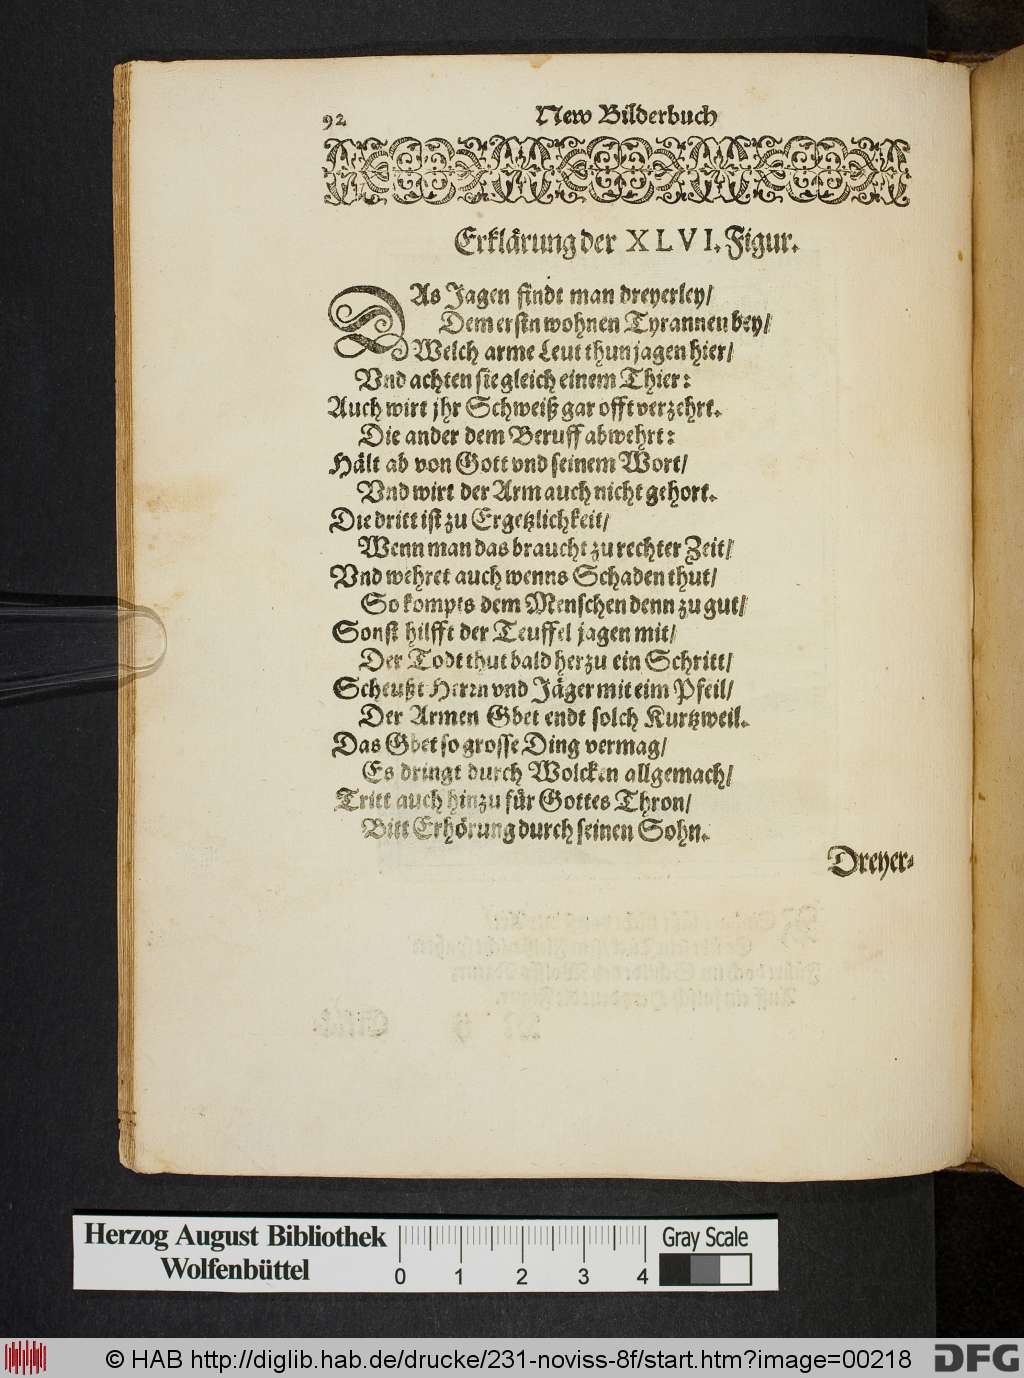 92 New Bilderbuch
Erklärung der XLVI. Figur.
DAs Jagen findt man dreyerley/
Dem erstn wohnen Tyrannen bey/
Welch arme Leut thun jagen hier/
Vnd achten sie gleich einem Thier:
Auch wirt jhr Schweiß gar offt verzehrt.
Die ander dem Beruff abwehrt:
Hält ab von Gott vnd seinem Wort/
Vnd wirt der Arm auch nicht gehort.
Die dritt ist zu Ergetzlichkeit/
Wenn man das braucht zu rechter Zeit/
Vnd wehret auch wenns Schaden thut/
So kompts dem Menschen denn zu gut/
Sonst hilfft der Teuffel jagen mit/
Der Todt thut bald herzu ein Schritt/
Scheußt Herrn vnd Jäger mit eim Pfeil/
Der Armen Gbet endt solch Kurtzweil.
Das Gbet so grosse Ding vermag/
Es dringt durch Wolcken allgemach/
Tritt auch hinzu für Gottes Thron/
Bitt Erhörung durch seinen Sohn.
Dreyer-
Herzog August Bibliothek
Wolfenbüttel
0 1 2 3 4
Gray Scale
© HAB http://diglib.hab.de/drucke/231-noviss-8f/start.htm?image=00218
DFG